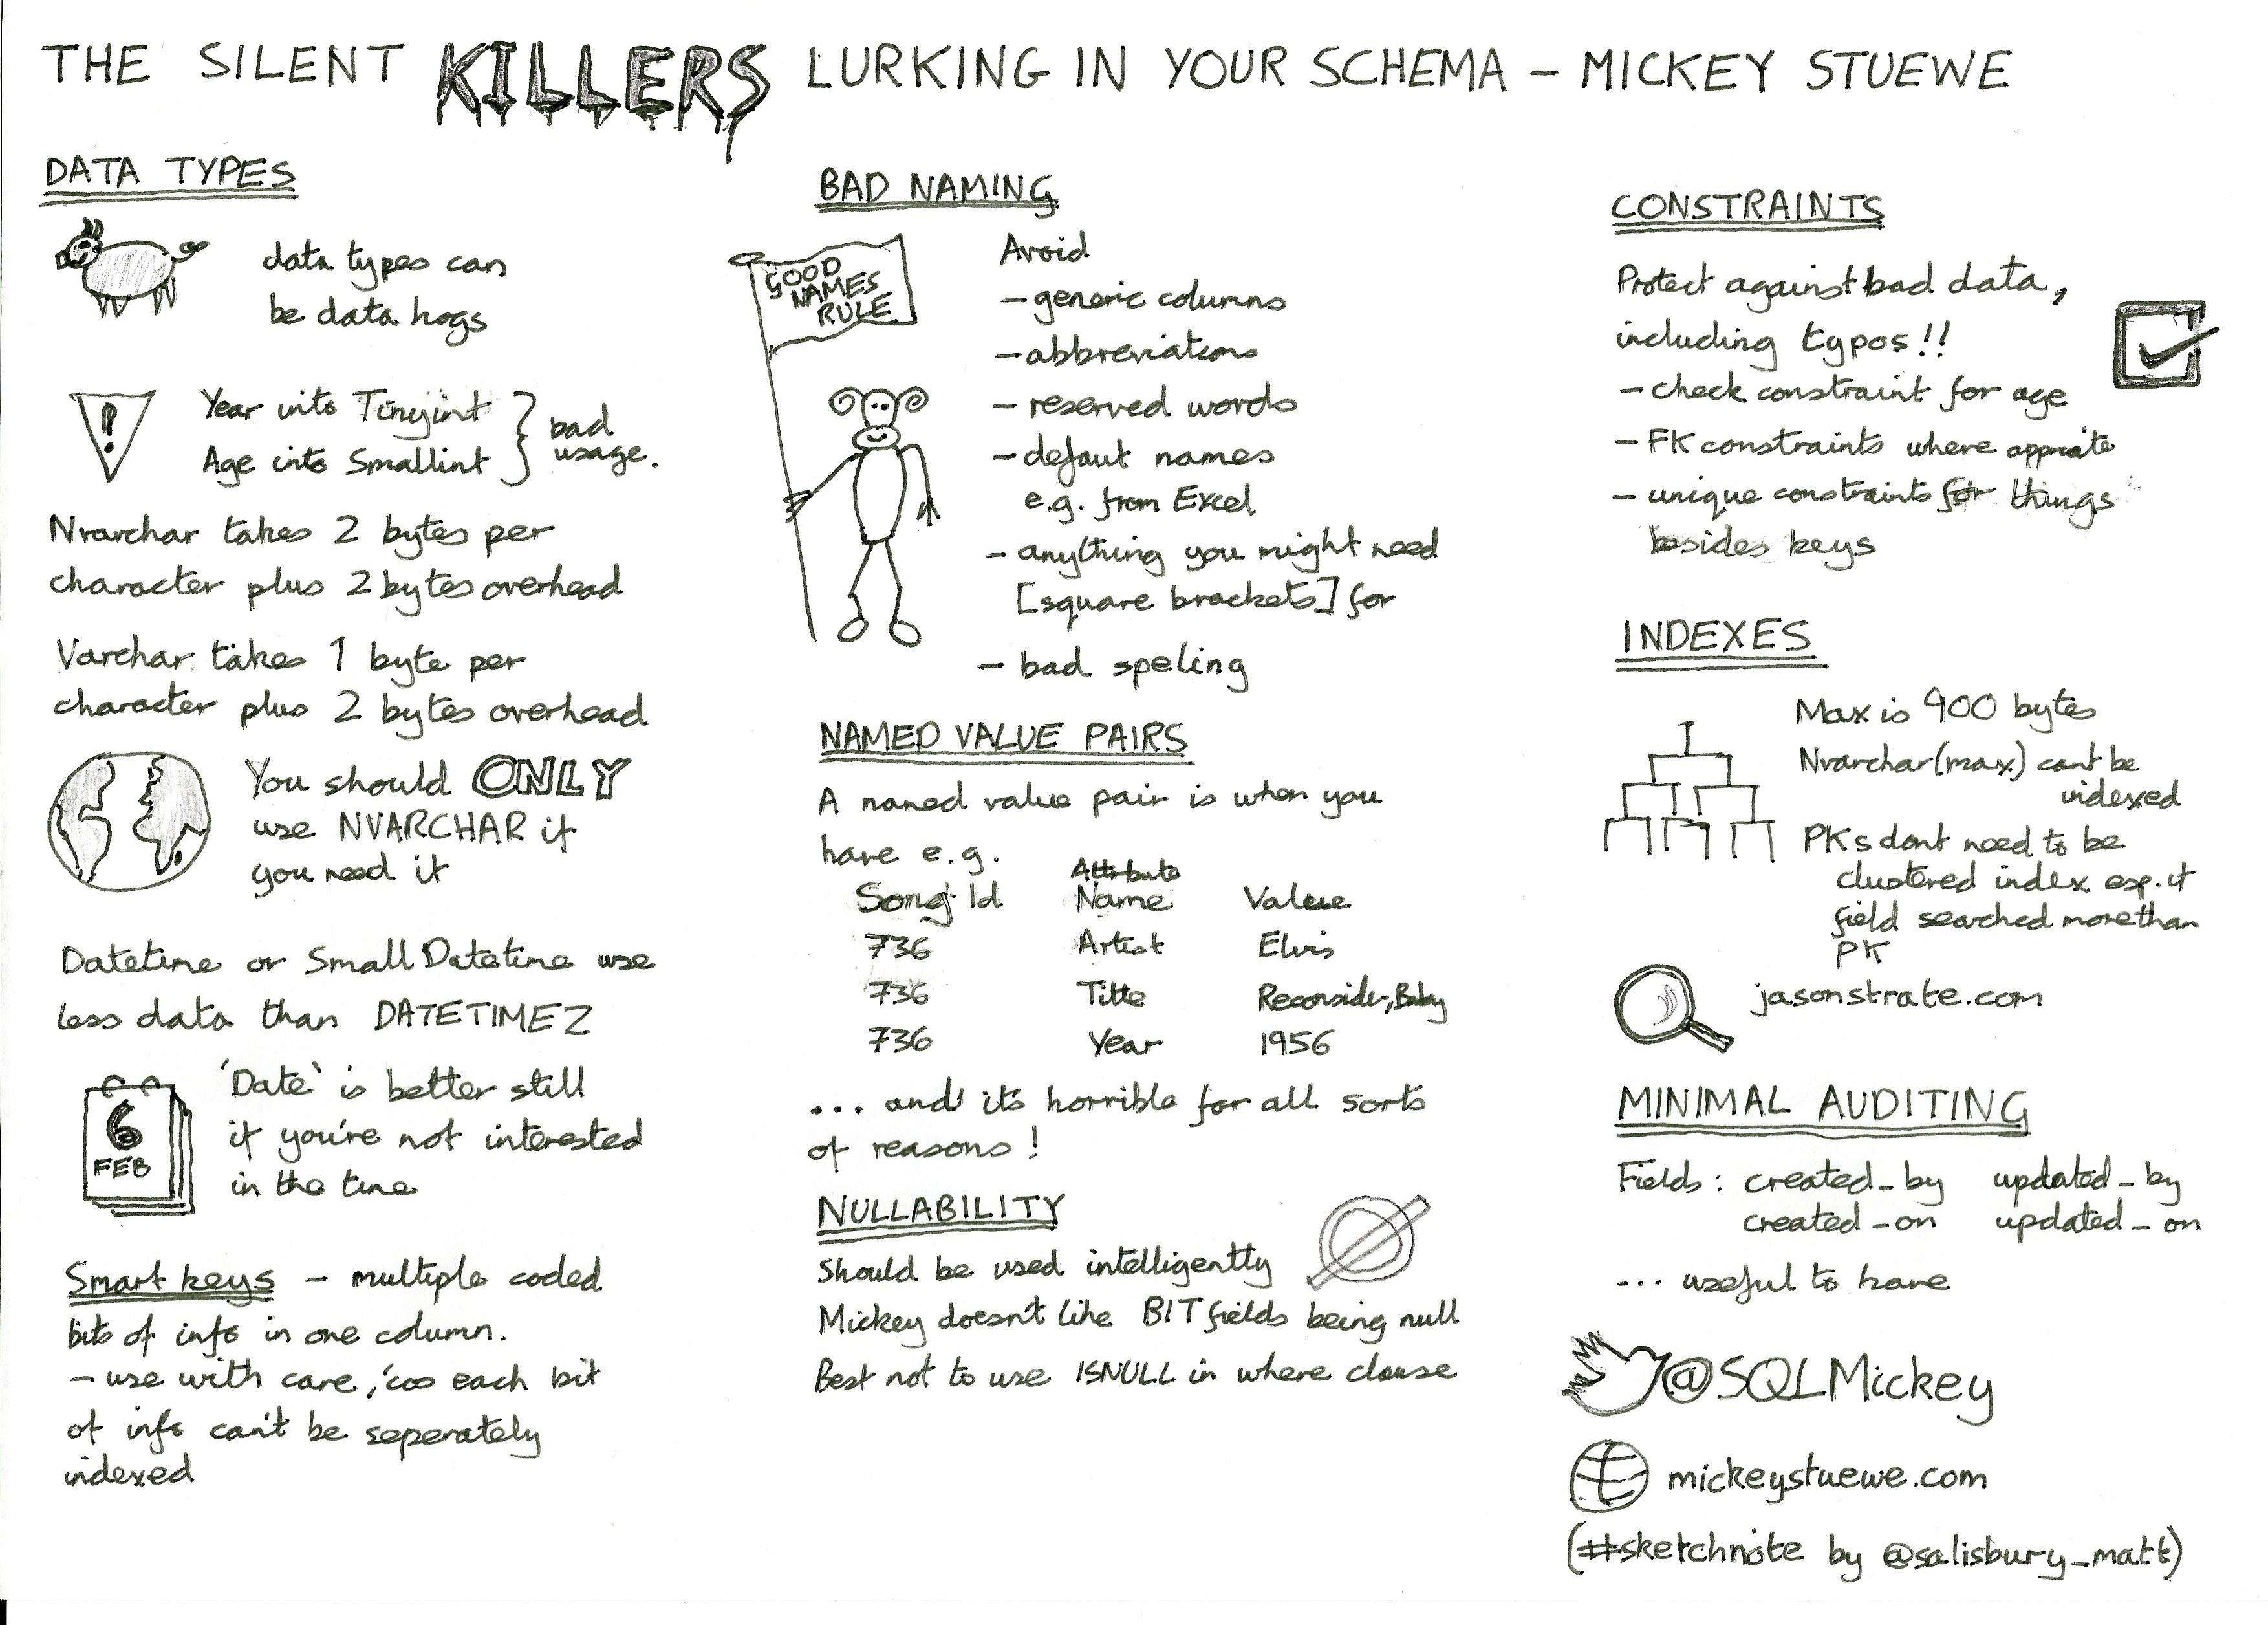 THE SILENT KILLERS LURKING IN YOUR SCHEMA - MICKEY STUEWE
DATA TYPES
data types can
be data hogs
!
Year into Tinyint
Age into Smallint
} bad
usage.
Nvarchar takes 2 bytes per
character plus 2 bytes overhead
Varchar takes 1 byte per
character plus 2 bytes overhead
You should ONLY
use NVARCHAR if
you need it
Datetime or SmallDatetime use
less data than DATETIME2
6
FEB
'Date' is better still
if you're not interested
in the time
Smart keys - multiple coded
bits of info in one column.
- use with care, 'cos each bit
of info can't be seperately
indexed
BAD NAMING
GOOD
NAMES
RULE
Avoid
- generic columns
- abbreviations
- reserved words
- defaut names
e.g. from Excel
- anything you might need
[square brackets] for
- bad speling
NAMED VALUE PAIRS
A named value pair is when you
have e.g.
Attribute
Song Id Name Value
736 Artist Elvis
736 Title Reconsider, Baby
736 Year 1956
... and it's horrible for all sorts
of reasons!
NULLABILITY
Should be used intelligently
Mickey doesn't like BIT fields being null
Best not to use ISNULL in where clause
CONSTRAINTS
Protect against bad data,
including typos!!
- check constraint for age
- FK constraints where
- unique constraints for things
besides keys
INDEXES
Max is 900 bytes
Nvarchar(max) cant be
indexed
PKs dont need to be
clustered index esp. if
field searched more than
PK
jasonstrate.com
MINIMAL AUDITING
Fields: created_by updated_by
created_on updated_on
... useful to have
@SQLMickey
mickeystuewe.com
(#sketchnote by @salisbury_matt)